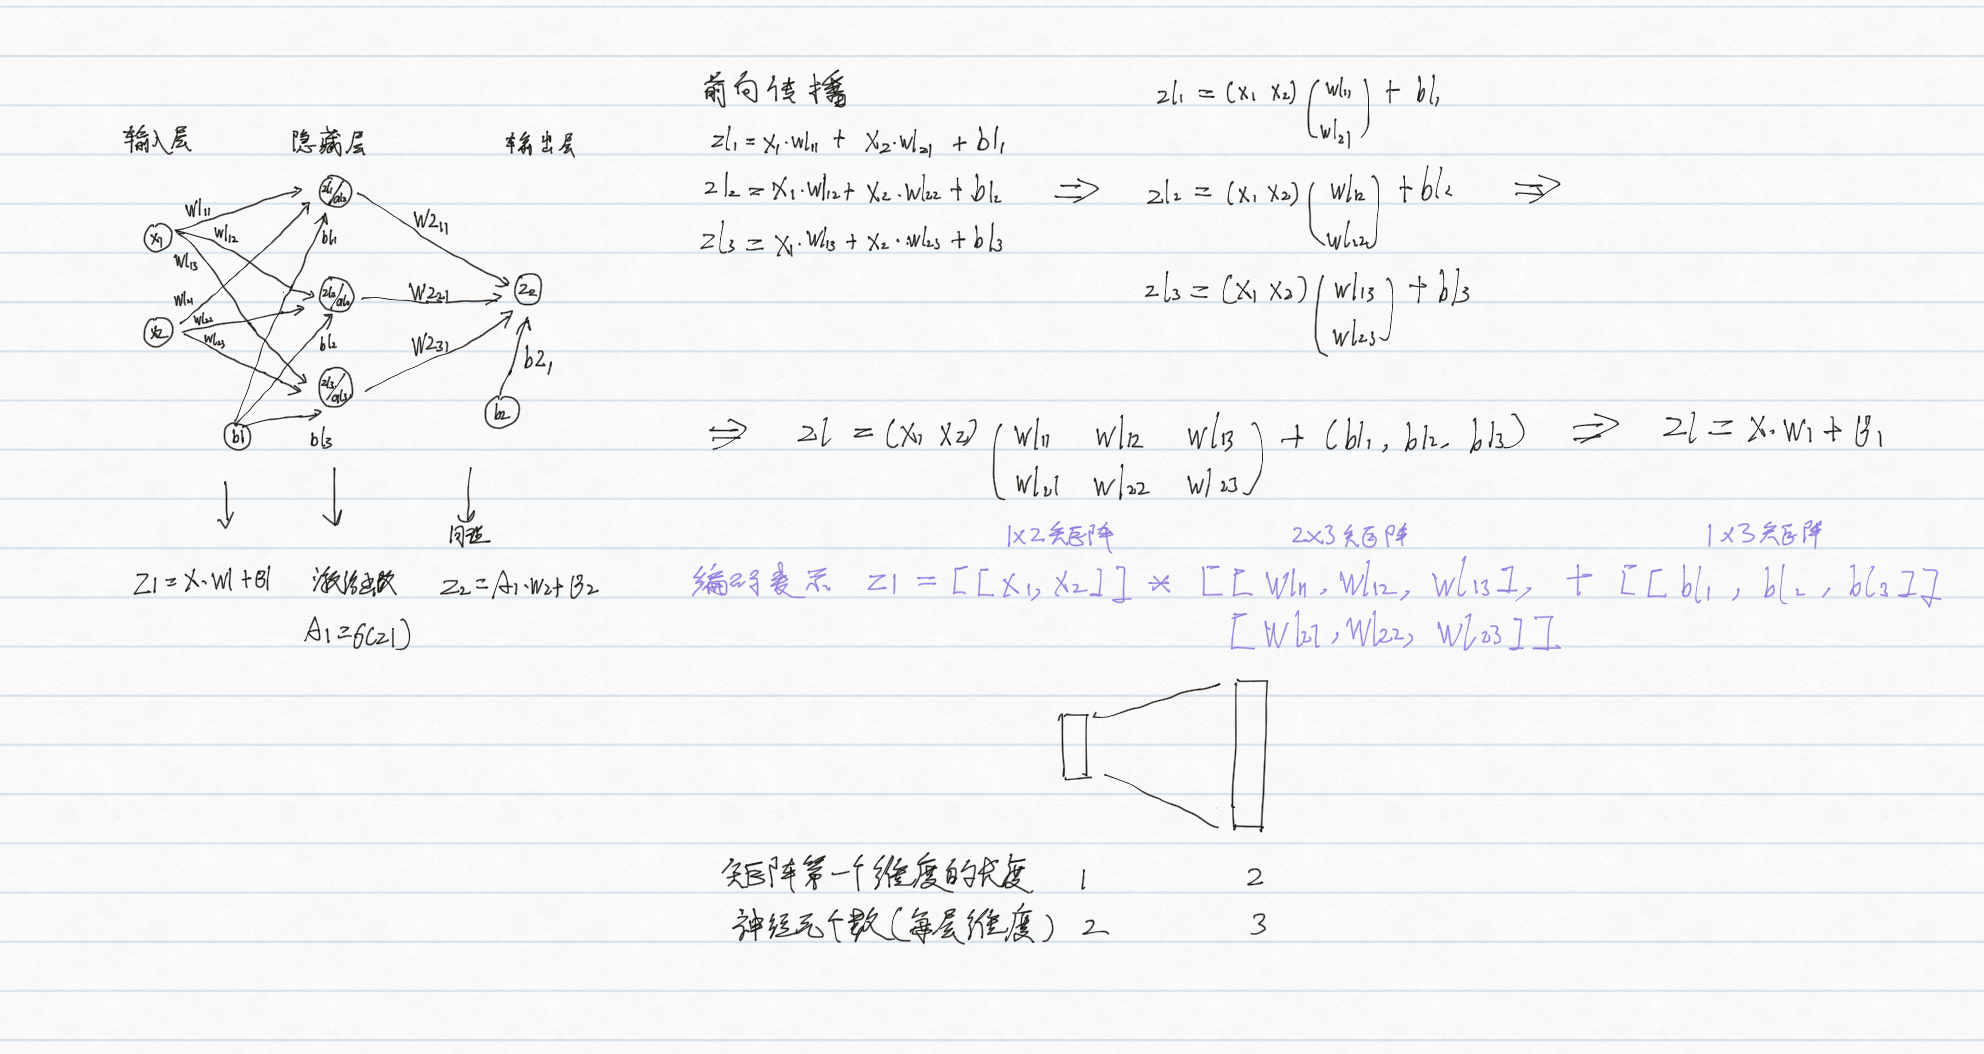 输入层 隐藏层 输出层
w1₁₁
w1₁₂
w1₁₃
w1₂₁
w1₂₂
w1₂₃
x₁
x₂
z1₁/a1₂
z1₂/a1₂
z1₃/a1₃
b1
b1₁
b1₂
b1₃
w2₁₁
w2₂₁
w2₃₁
z₂
b2₁
b₂
同理
z1=x·w1+B1 激活函数 z₂=A₁·w₂+B₂
A₁=σ(z1)
前向传播
z1₁=x₁·w1₁₁+x₂·w1₂₁+b1₁
z1₂=x₁·w1₁₂+x₂·w1₂₂+b1₂ ⇒
z1₃=x₁·w1₁₃+x₂·w1₂₃+b1₃
z1₁=(x₁ x₂)(w1₁₁ w1₂₁)+b1₁
z1₂=(x₁ x₂)(w1₁₂ w1₂₂)+b1₂ ⇒
z1₃=(x₁ x₂)(w1₁₃ w1₂₃)+b1₃
⇒ z1=(x₁ x₂)(w1₁₁ w1₁₂ w1₁₃ +(b1₁, b1₂, b1₃) ⇒ z1=x·w₁+B₁
w1₂₁ w1₂₂ w1₂₃)
1×2矩阵 2×3矩阵 1×3矩阵
编码表示 z1=[[x₁,x₂]]*[[w1₁₁,w1₁₂,w1₁₃],+[[b1₁,b1₂,b1₃]]
[w1₂₁,w1₂₂,w1₂₃]]
矩阵第一个维度的长度 1 2
神经元个数(每层维度) 2 3